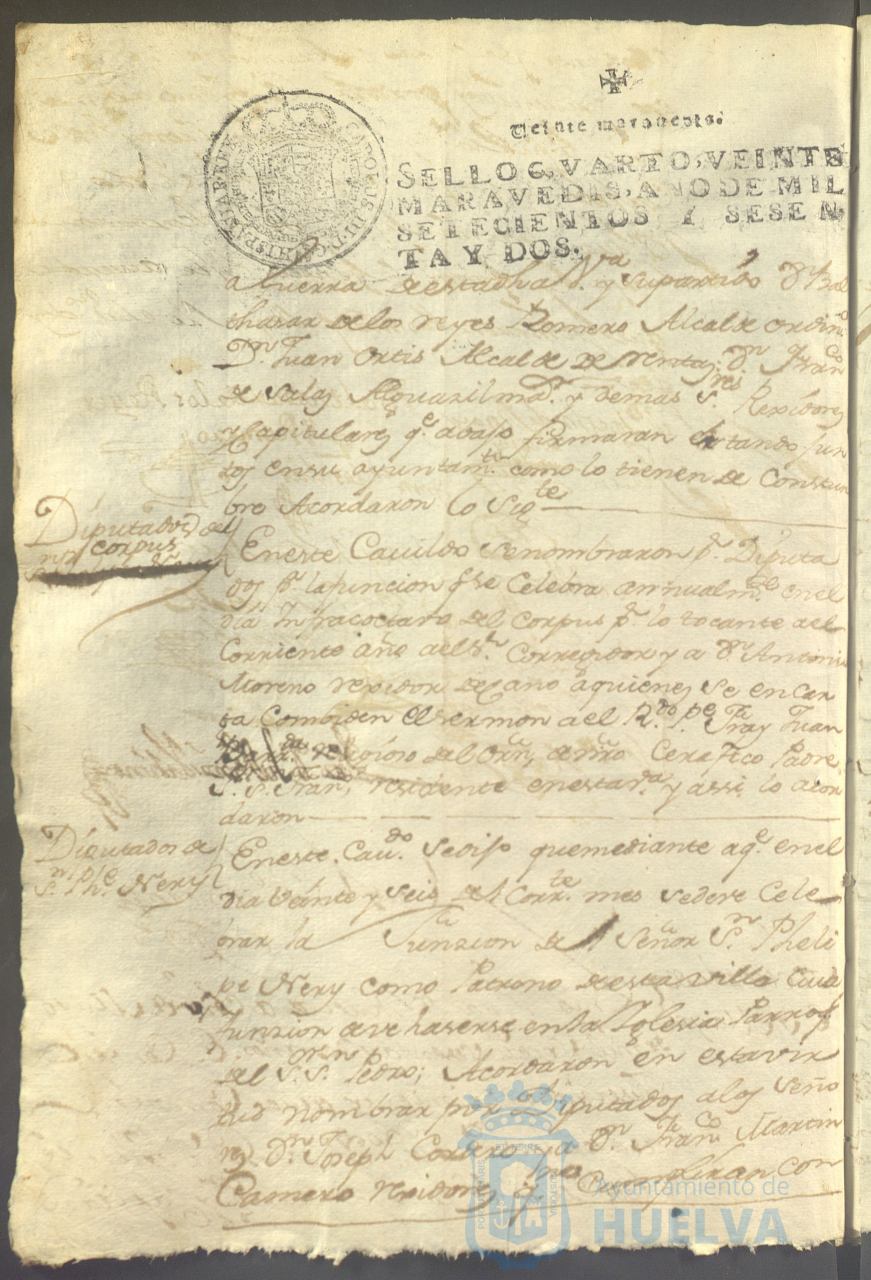 Veinte maravedis.
SELLO QVARTO, VEINTE
MARAVEDIS, AÑO DE MIL
SETECIENTOS Y SESEN
TA Y DOS.
CAROLUS III D G HISPANIAR REX
a Guerra de esta dha Va. y su partido Dn. Bal
thasar de los reyes Romero Alcalde ordino.
Dn. Juan Ortis Alcalde de Dn. Franco.
de Salas Alguazil mor. y demas Sres. Rexidores
y Capitulares qe. abajo firmaran estando jun
tos en su ayuntamto. como lo tienen de Costum
bre Acordaron lo sigte
Diputados del
corpus
En este Cavildo se nombraron pr. Diputa
dos pa. la funcion qe. se celebra annualmte. en el
dia Infraoctavo del Corpus pr. lo tocante a el
Corriente año a el Sr. Corregidor y a Dn. Antonio
Moreno rexidor decano a quienes se encar
ga combiden el sermon a el Rdo. Pe. Fray Juan
religioso del Orn. de nro. Cerafico Padre
Sr. S. Franco. residente en esta va. y assi lo acor
daron
Diputados de
Sn. Phe. Nery
En este Cavdo. se dijo que mediante a qe. en el
dia veinte y seis del Corrte. mes se deve Cele
brar la Funzion de el Señor Sn. Pheli
pe Nery como Patrono de esta villa Cuia
funzion deve haserse en la Iglesia Parroql.
del Sr. S. Pedro; Acordaron en esta vir
tud nombrar por Diputados a los Seño
res Dn. Joseph Cordero y a Dn. Franco. Martin
Camero rexidores qnes. Cumpliran con
Ayuntamiento de
HUELVA